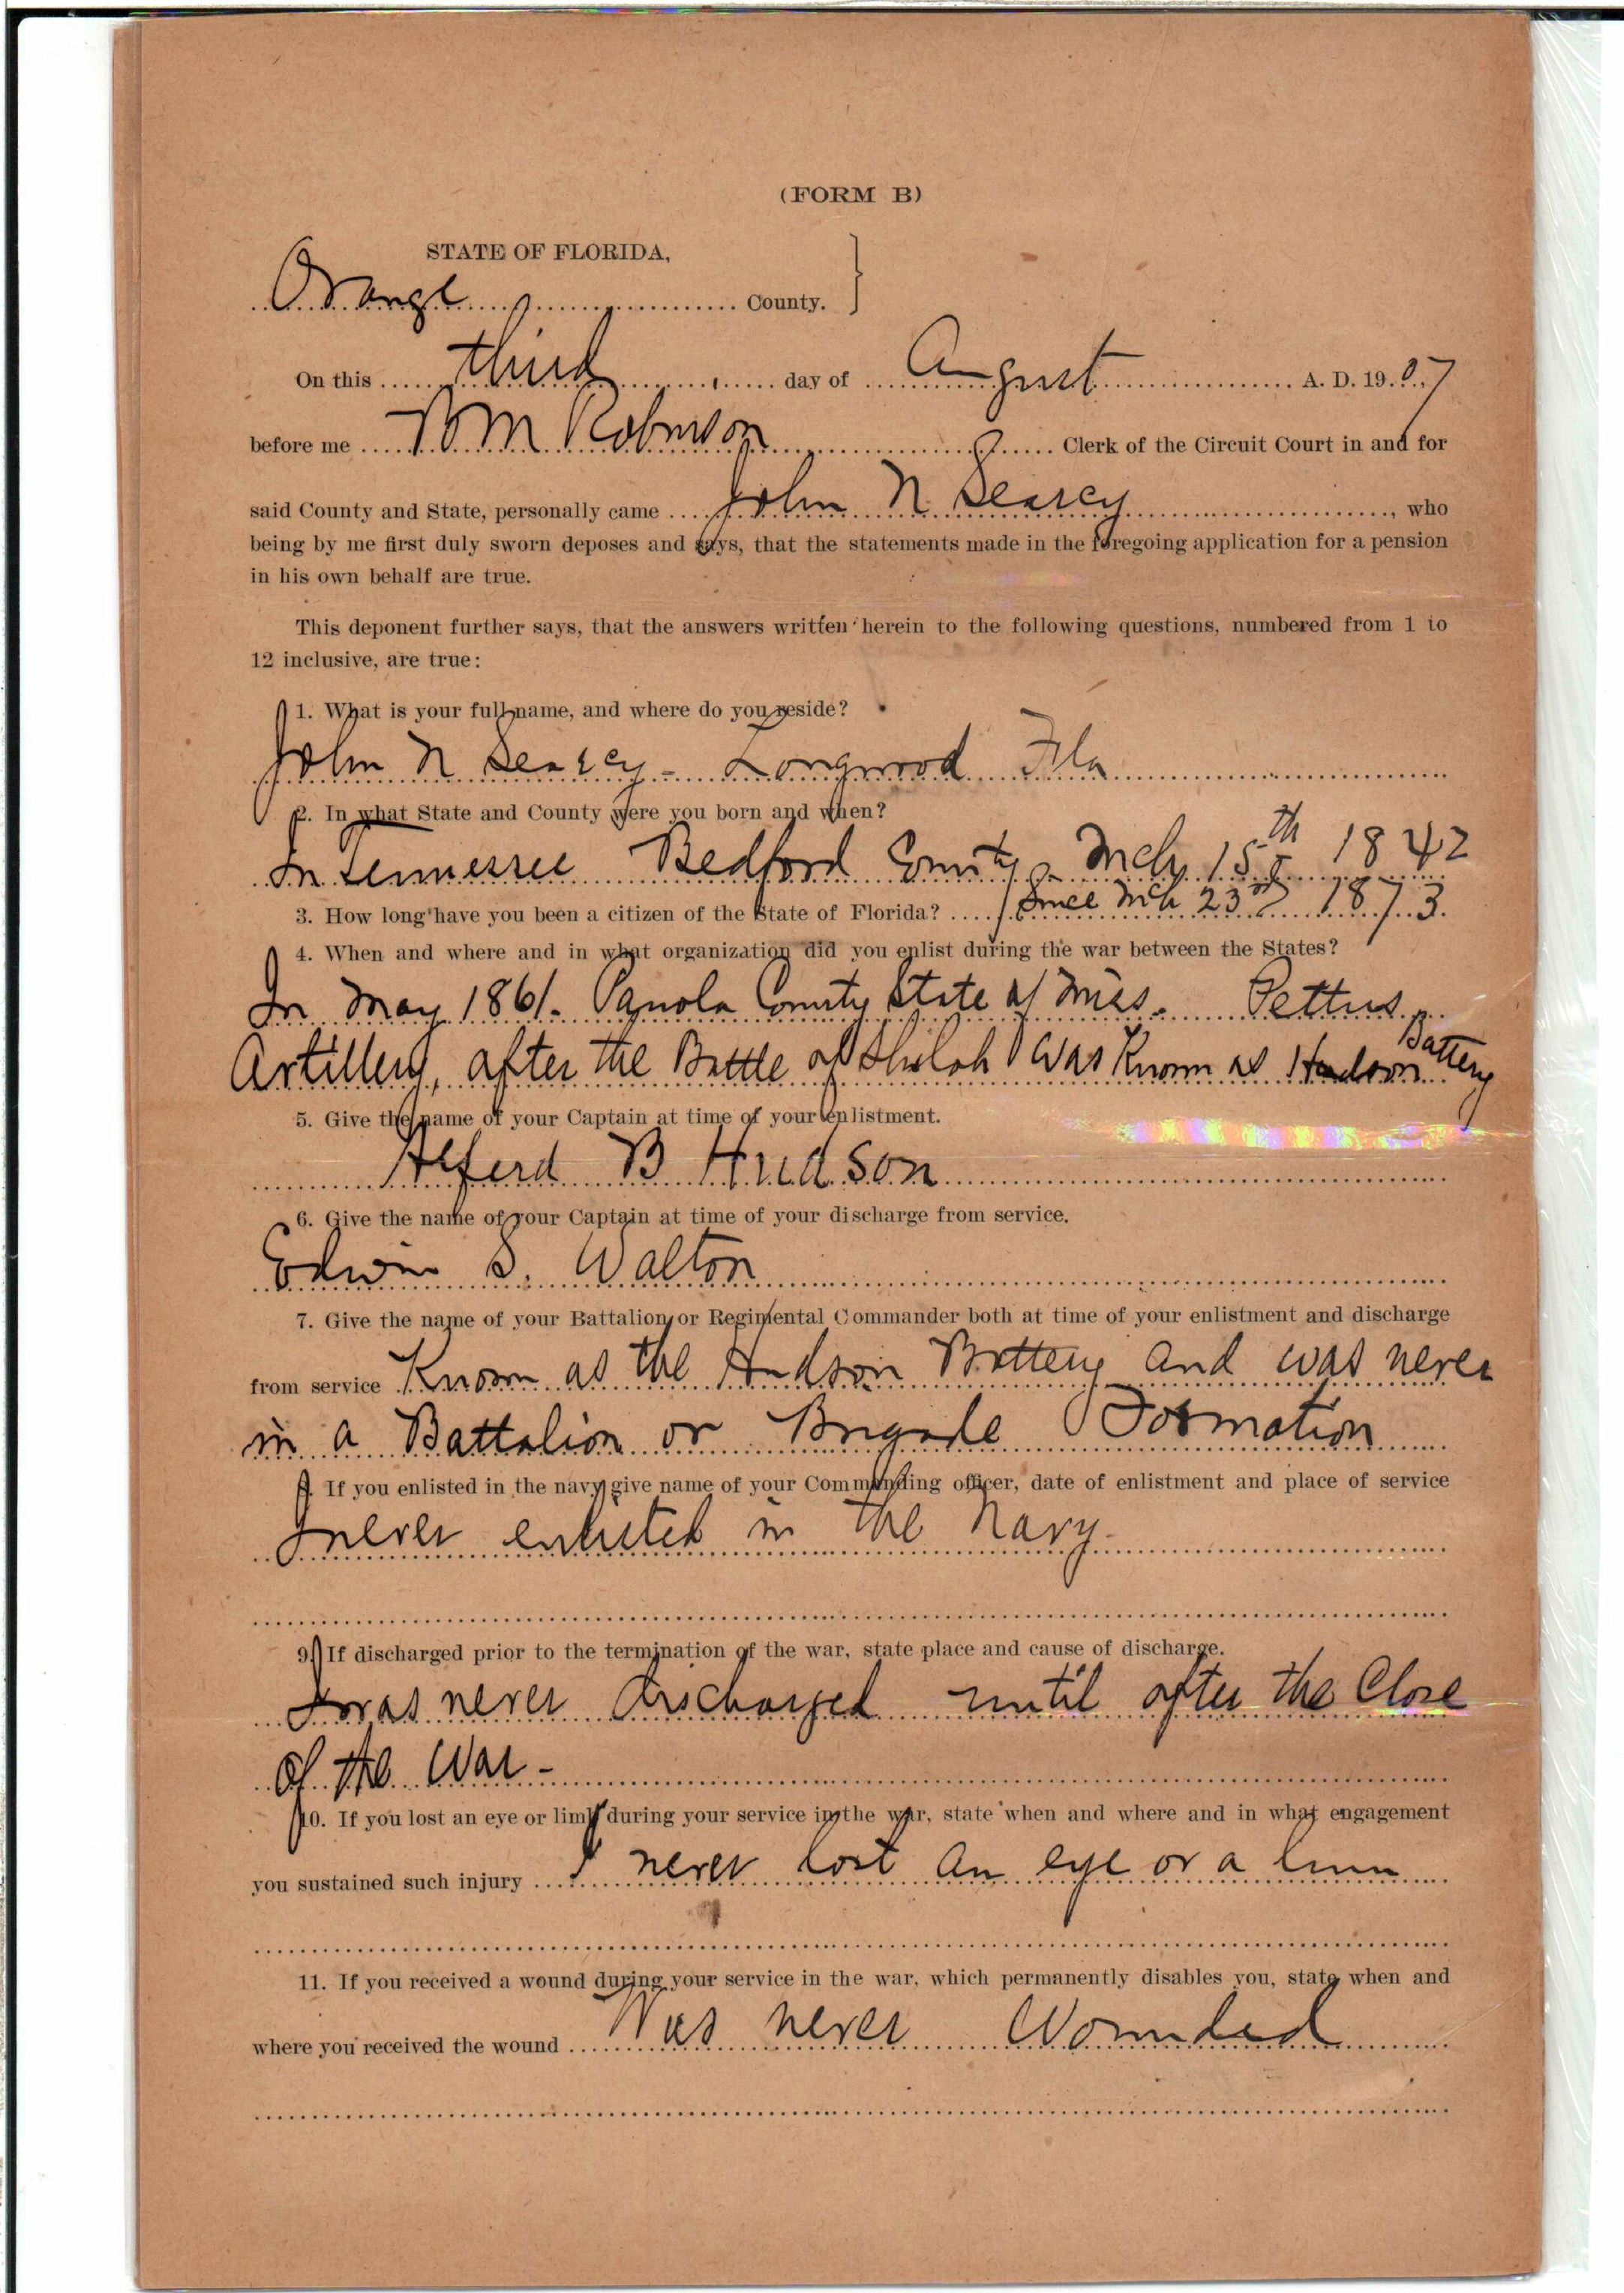 (FORM B)
STATE OF FLORIDA,
Orange County.
On this third day of August A. D. 1907
before me B M Robinson Clerk of the Circuit Court in and for
said County and State, personally came John N Searcy, who
being by me first duly sworn deposes and says, that the statements made in the foregoing application for a pension
in his own behalf are true.
This deponent further says, that the answers written herein to the following questions, numbered from 1 to
12 inclusive, are true:
1. What is your full name, and where do you reside?
John N Searcy - Longwood Fla
2. In what State and County were you born and when?
In Tennessee Bedford County - Mch 15th 1842
3. How long have you been a citizen of the State of Florida? Since Mch 23rd 1873.
4. When and where and in what organization did you enlist during the war between the States?
In May 1861. Panola County State of Miss. Pettus
Artillery, after the Battle of Shiloh was Known as Hudson Battery
5. Give the name of your Captain at time of your enlistment.
Alferd B Hudson
6. Give the name of your Captain at time of your discharge from service.
Edwin S. Walton
7. Give the name of your Battalion or Regimental Commander both at time of your enlistment and discharge
from service Known as the Hudson Battery and was never
in a Battalion or Brigade Formation
8. If you enlisted in the navy give name of your Commanding officer, date of enlistment and place of service
I never enlisted in the Navy-
9. If discharged prior to the termination of the war, state place and cause of discharge.
I was never discharged until after the Close
of the War -
10. If you lost an eye or limb during your service in the war, state when and where and in what engagement
you sustained such injury I never lost an eye or a
11. If you received a wound during your service in the war, which permanently disables you, state when and
where you received the wound Was never Wounded